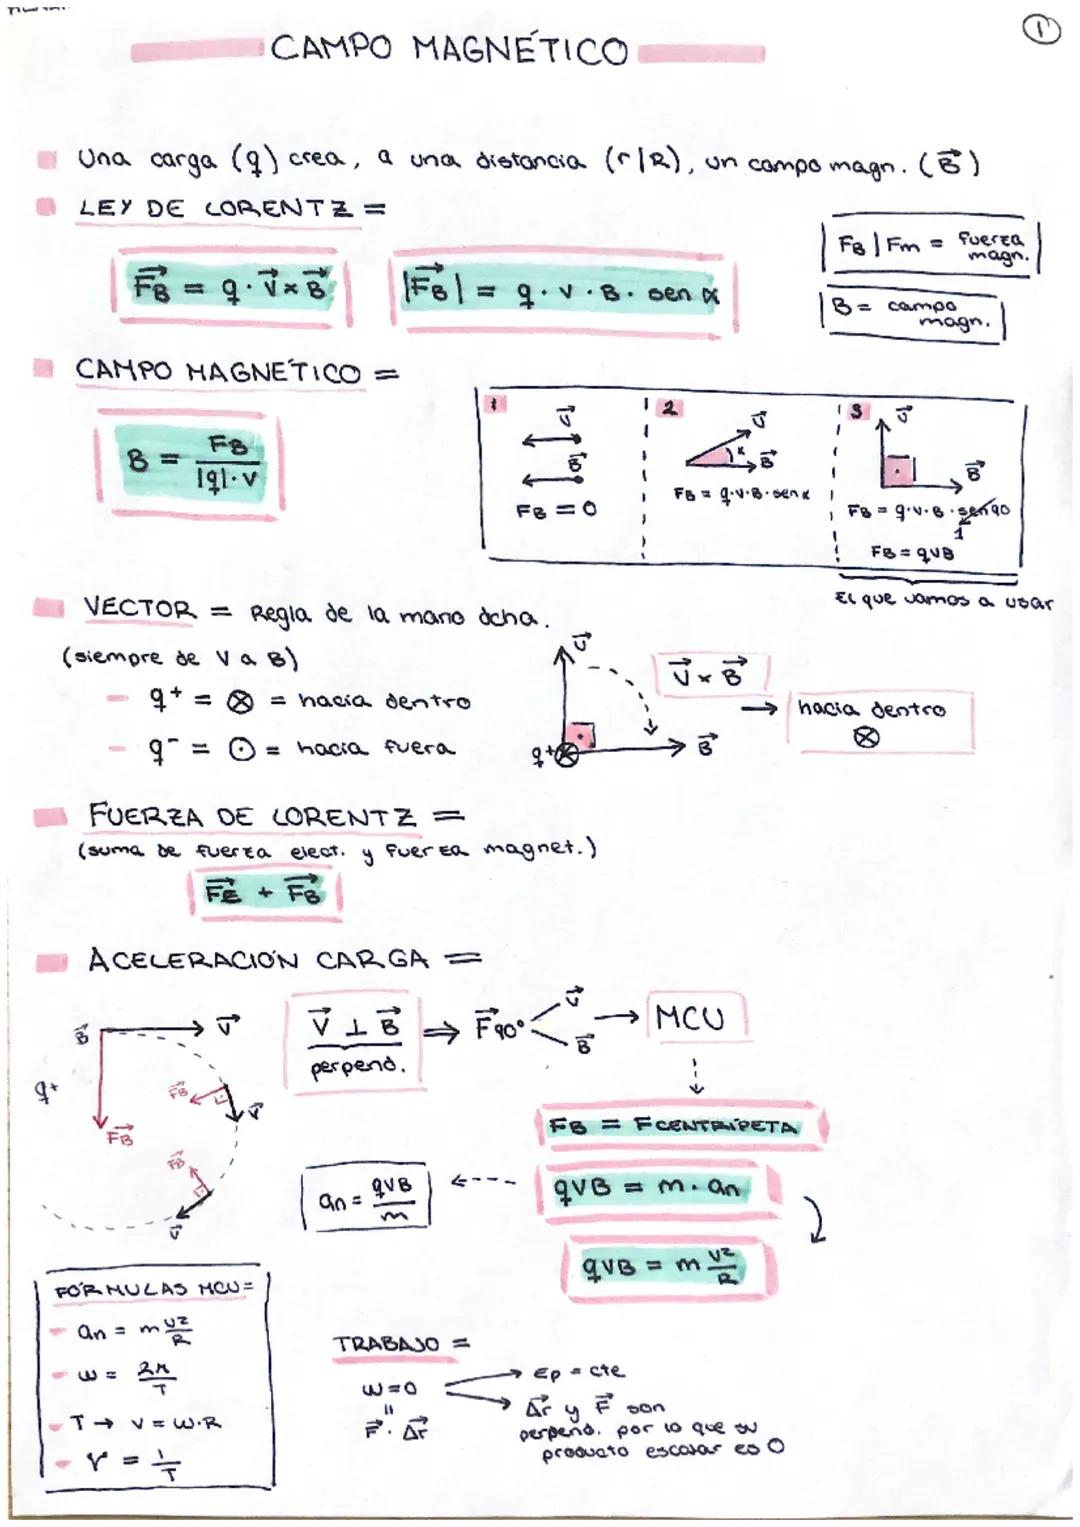 ①
CAMPO MAGNÉTICO
Una carga (q) crea, a una distancia (r/R), un campo magn. (B⃗)
LEY DE LORENTZ =
F⃗B = q · v⃗ × B⃗
|F⃗B| = q · v · B · sen α
FB | Fm = fuerza magn.
B = campo magn.
CAMPO MAGNÉTICO =
B = FB / |q| · v
1
v⃗
B⃗
FB = 0
2
v⃗
α
B⃗
FB = q·v·B·sen α
3
v⃗
B⃗
FB = q·v·B·sen90
1
FB = qvB
El que vamos a usar
VECTOR = Regla de la mano dcha.
(siempre de V a B)
q⁺ = ⊗ = hacia dentro
q⁻ = ⊙ = hacia fuera
v⃗
q⁺
B⃗
v⃗ × B⃗
→ hacia dentro
⊗
FUERZA DE LORENTZ =
(suma de fuerza elect. y fuerza magnet.)
F⃗E + F⃗B
ACELERACIÓN CARGA =
B⃗
v⃗
q⁺
F⃗B
F⃗B
v⃗
F⃗B
v⃗
v⃗ ⊥ B⃗ ⇒ F⃗ 90° < v⃗ B⃗ → MCU
perpend.
FB = FCENTRÍPETA
an = qvB / m
qvB = m · an
qvB = m v² / R
FÓRMULAS MCU =
an = m v² / R
ω = 2π / T
T → v = ω·R
γ = 1 / T
TRABAJO =
W = 0
=
F⃗ · Δr⃗
→ Ep = cte
→ Δr⃗ y F⃗ son
perpend. por lo que su
producto escalar es 0